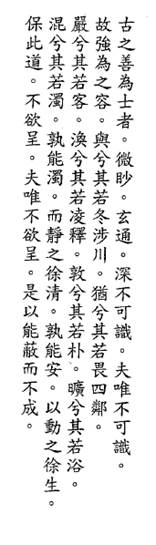 古之善為士者。微眇。玄通。深不可識。夫唯不可識。
故強為之容。與兮其若冬涉川。猶兮其若畏四鄰。
嚴兮其若客。渙兮其若凌釋。敦兮其若朴。曠兮其若浴。
混兮其若濁。孰能濁。而靜之徐清。孰能安。以動之徐生。
保此道。不欲呈。夫唯不欲呈。是以能蔽而不成。